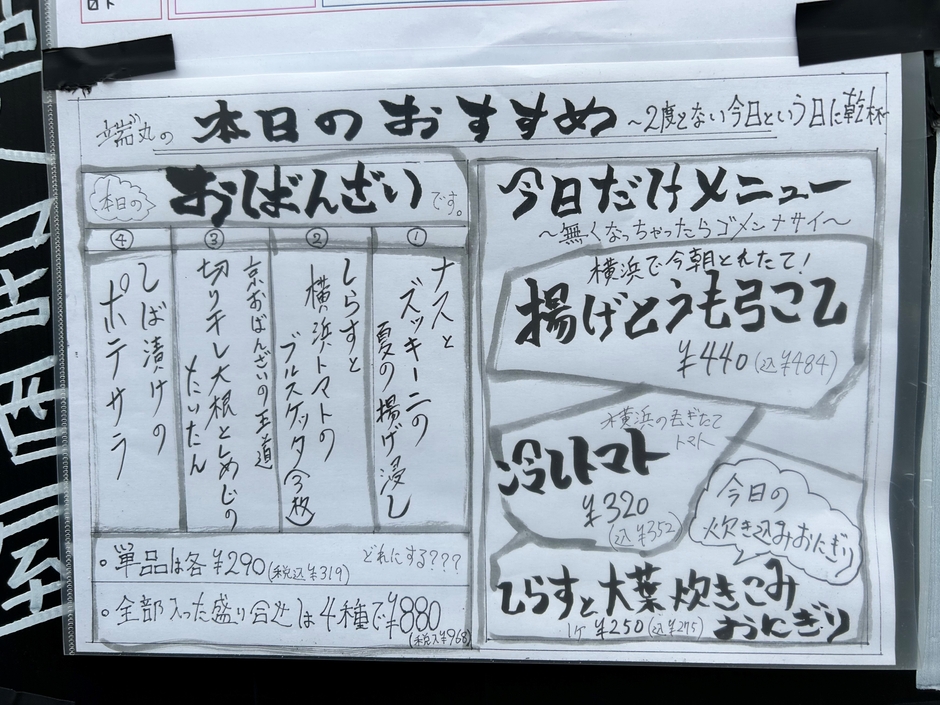 端丸の 本日のおすすめ 〜2度とない今日という日に乾杯
本日の おばんざい です。
①
ナスと
ズッキーニの
夏の揚げ浸し
②
しらすと
横浜トマトの
ブルスケッタ(3枚)
③
京おばんざいの王道
切り干し大根としめじの
たいたん
④
しば漬けの
ポテサラ
・単品は各¥290(税込¥319) どれにする???
・全部入った盛り合せは4種で¥880
(税込¥968)
今日だけメニュー
〜無くなっちゃったらゴメンナサイ〜
横浜で今朝とれたて!
揚げとうもろこし
¥440(込¥484)
横浜の
トマト
冷しトマト
¥320
(込¥352)
今日の
炊き込みおにぎり
しらすと大葉炊きこみ
おにぎり
1ヶ ¥250(込¥275)
居酒屋